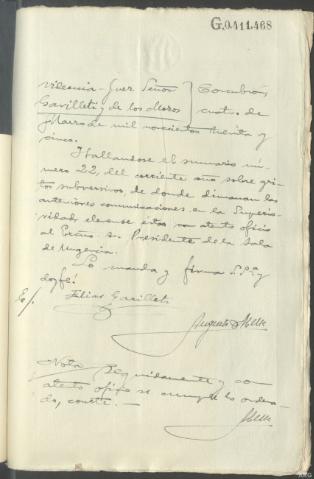 G.0411.468
Videncia - Juez Señor } Corcubion,
Gavilleti y de los Meros } cuatro de
Marzo de mil novecientos treinta y
cinco.
Hallandose el sumario nú-
mero 22, del corriente año sobre gri-
tos subversivos de donde dimanan las
anteriores comunicaciones en la Superio-
ridad, elevense estas con atento oficio
al Excmo. Sr. Presidente de la Sala
de Urgencia.
Lo manda y firma S.Sª y
doy fé.
E/.
Nota Seguidamente y con
atento oficio se cumple lo ordena-
do, certif. —